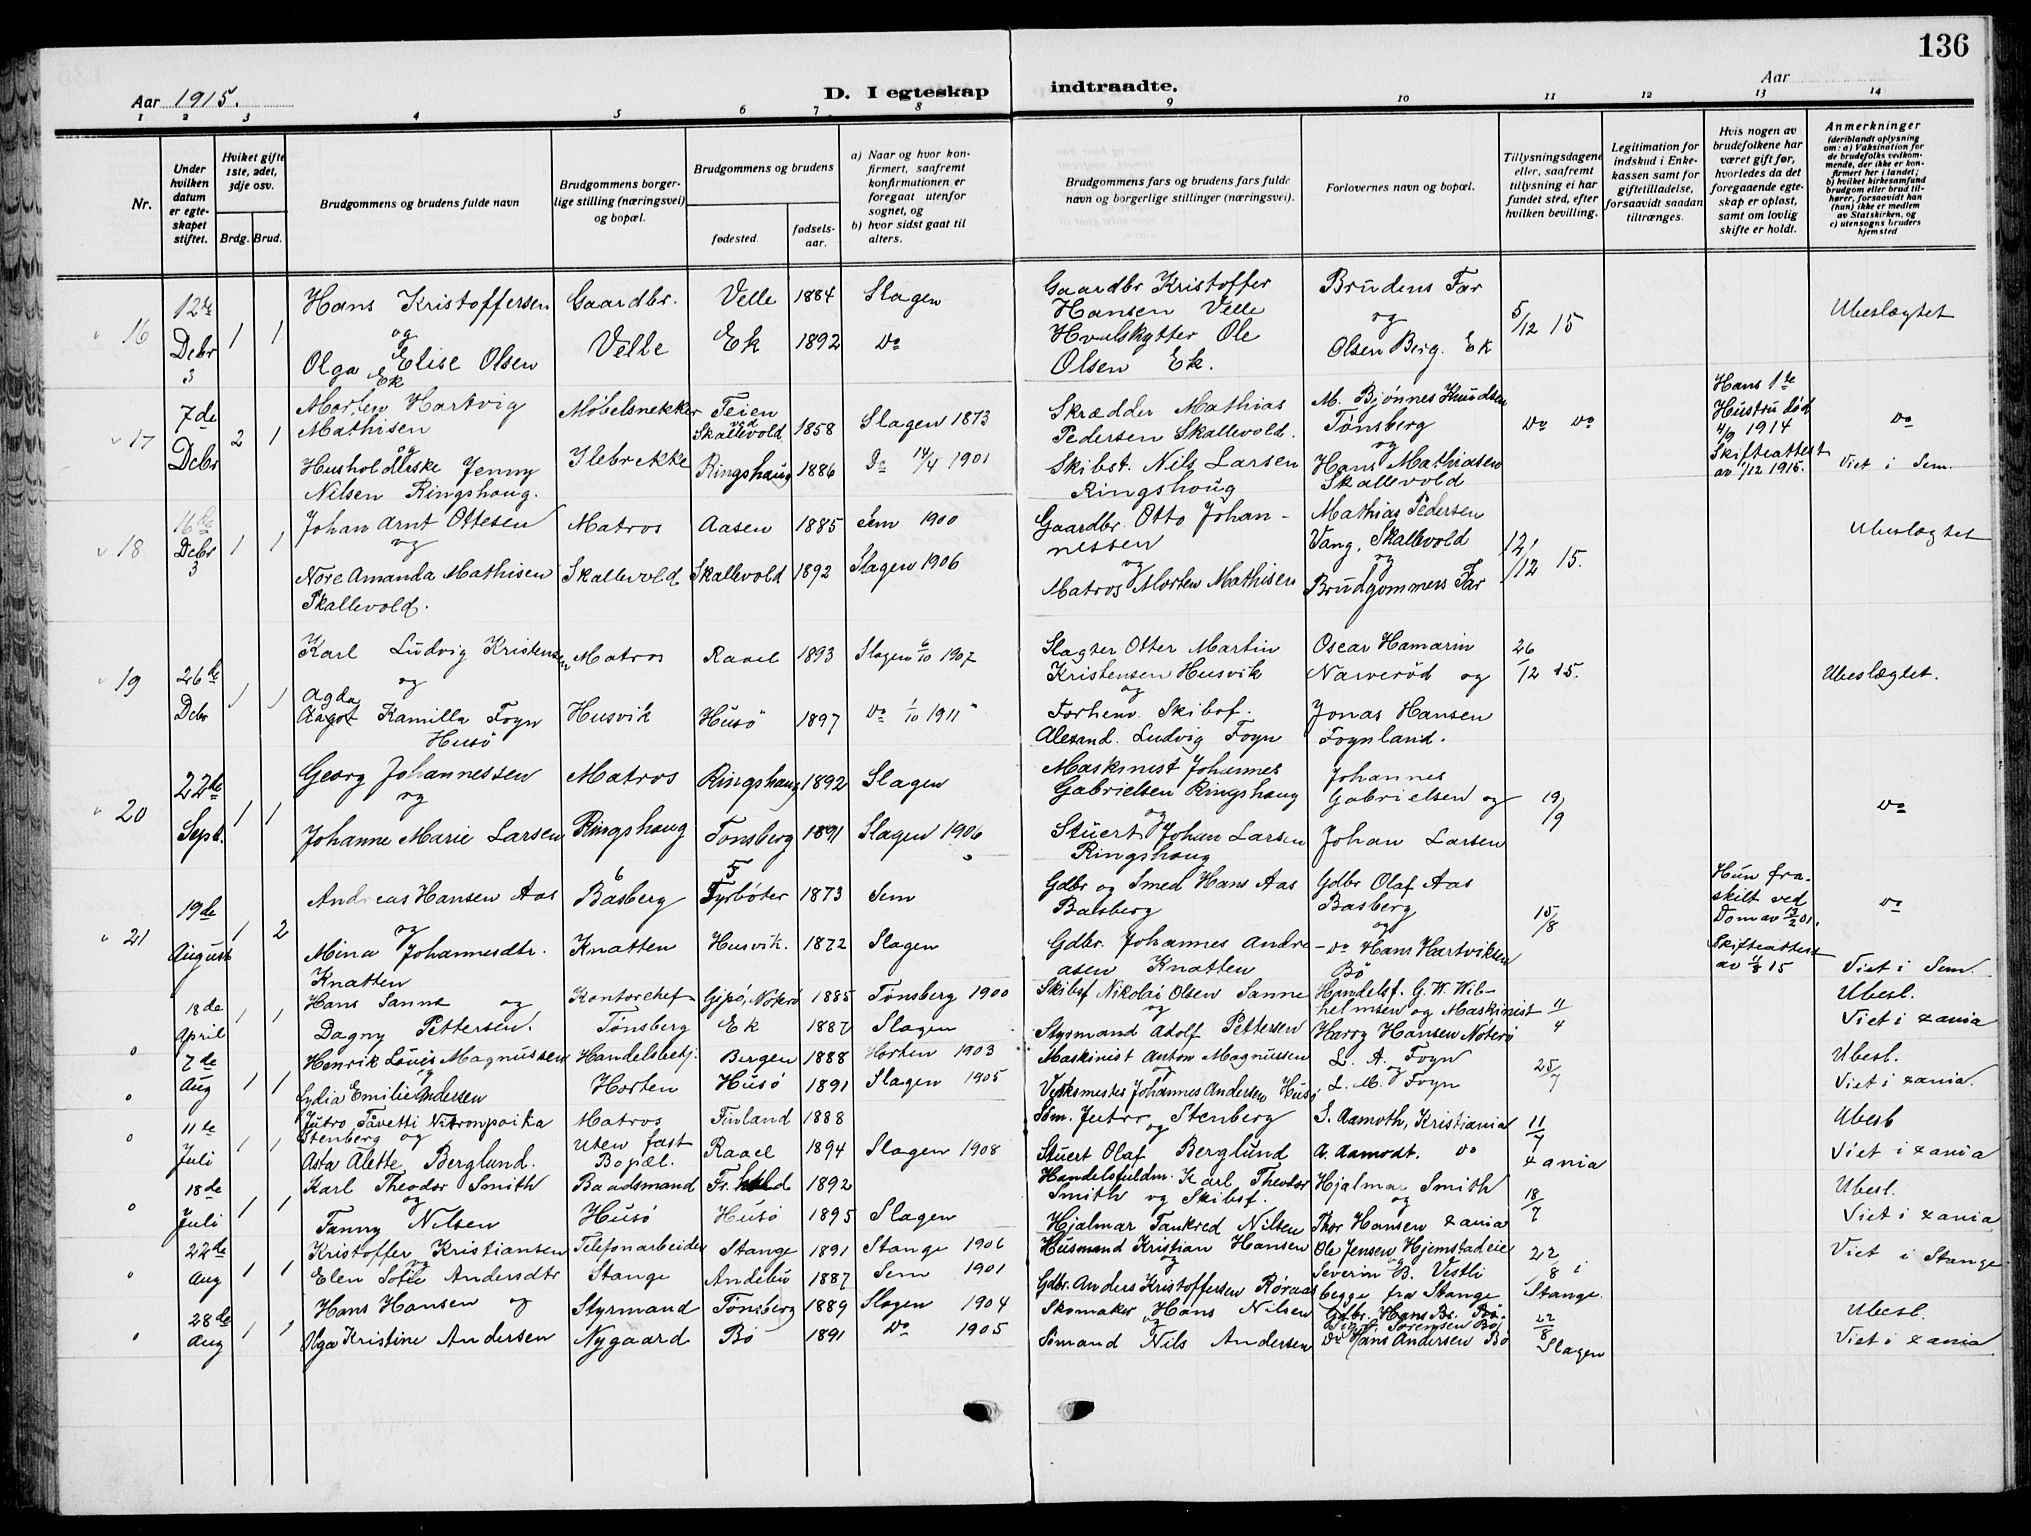 136
Aar 1915.
D. I egteskap indtraadte.
Aar
1 2 3 4 5 6 7 8 9 10 11 12 13 14
Nr.
Under hvilken datum er egteskapet stiftet.
Hvilket gifte 1ste, 2det, 3dje osv.
Brdg. Brud.
Brudgommens og brudens fulde navn
Brudgommens borgerlige stilling (næringsvei) og bopæl.
Brudgommens og brudens
fødested.
fødselsaar.
a) Naar og hvor konfirmert, saafremt konfirmationen er foregaat utenfor sognet, og
b) hvor sidst gaat til alters.
Brudgommens fars og brudens fars fulde navn og borgerlige stillinger (næringsvei).
Forlovernes navn og bopæl.
Tillysningsdagene eller, saafremt tillysning ei har fundet sted, efter hvilken bevilling.
Legitimation for indskud i Enkekassen samt for giftetilladelse, forsaavidt saadan tiltrænges.
Hvis nogen av brudefolkene har været gift før, hvorledes da det foregaaende egteskap er opløst, samt om lovlig skifte er holdt.
Anmerkninger (deriblandt oplysning om: a) Vaksination for de brudefolks vedkommende, der ikke er konfirmert her i landet; b) hvilket kirkesamfund brudgom eller brud tilhører, forsaavidt han (hun) ikke er medlem av Statskirken, og c) utensogns bruders hjemsted
16 12te Debr 3 1 1
Hans Kristoffersen Gaardbr. Velle 1884 Slagen
og
Olga Elise Olsen Ek Velle Ek 1892 do
Gaardbr Kristoffer Hansen Velle
Hvalskytter Ole Olsen Ek.
Brudens Far
og
Olsen Berg. Ek
5/12 15
Ubeslægtet
17 7de Debr 2 1
Morten Hartvig Mathisen Møbelsnekker Teien ved Skallevold 1858 Slagen 1873
og
Husholderske Jenny Nilsen Ringshaug. Ilebrekke Ringshaug 1886 do 14/4 1901
Skrædder Mathias Pedersen Skallevold.
Skibst. Nils Larsen Ringshoug
M. Bjønnes Knudsen Tønsberg
og
Hans Mathiasen Skallevold
do do
Hans 1te Hustru død 4/9 1914
Skifteattest av 1/12 1915.
do
Viet i Sem.
18 16de Debr 3 1 1
Johan Arnt Ottesen Matros Aasen 1885 Sem 1900
og
Nore Amanda Mathisen Skallevold. Skallevold Skallevold 1892 Slagen 1906
Gaardbr. Otto Johannessen
og
Matros Morten Mathisen
Mathias Pedersen Vang, Skallevold
og
Brudgommens Far
12/12 15.
Ubeslægtet
19 26de Debr 1 1
Karl Ludvig Kristensen Matros Raael 1893 Slagen 6/10 1907
og
Agda Aagot Kamilla Foyn Husö Husvik Husö 1897 do 1/10 1911
Slagter Otter Martin Kristensen Husvik
og
Forhenv. Skibsf. Alexand. Ludvig Foyn
Oscar Hamarin Narverød og
Jonas Hansen Foynland.
26/12 15.
Ubeslægtet.
20 22de Sept. 1 1
Georg Johannessen Matros Ringshaug 1892 Slagen
og
Johanne Marie Larsen Ringshoug Tønsberg 1891 Slagen 1906
Maskinist Johannes Gabrielsen Ringshaug
og
Stuert Johan Larsen Ringshoug
Johannes Gabrielsen og
Johan Larsen
19/9
do
21 19de August 1 2
Andreas Hansen Aas Basberg Fyrbøter 1873 Sem
og
Mina Johannesdtr. Knatten Knatten Husvik. 1872 Slagen
Gdbr og Smed Hans Aas Basberg
Gdbr. Johannes Andreasen Knatten
Gdbr Olaf Aas Basberg
og
do Hans Hartviksen Bø
15/8
Hun fraskilt ved Dom av 12/2 01.
Skifteattest av 11/8 15
do
Viet i Sem.
18de April 1 1
Hans Sanne og Kontorchef Gipö, Nøterö 1885 Tønsberg 1900
Dagny Pettersen. Tønsberg Ek 1887 Slagen
Skibsf Nikolai Olsen Sanne
og
Styrmand Adolf Pettersen
Handelsf. G. W. Wilhelmsen og Maskinist Harry Hansen Nøterø
11/4
Ubesl.
Viet i Xania
7de Aug 1 1
Henrik Louis Magnussen Handelsbetj. Bergen 1888 Horten 1903
og
Lydia Emilie Andersen Horten Husö 1891 Slagen 1905
Maskinist Anton Magnussen
og
Verksmester Johannes Andersen Husö
L. A. Foyn
og
L. M. Foyn
25/7
Ubesl.
Viet i Xania.
11te Juli 1 1
Jutro Tavetti Stenberg og Matros Finland 1888
Asta Alette Berglund. uten fast Bopæl. Raael 1894 Slagen 1908
Søm. Jutro Stenberg
og
Stuert Olaf Berglund
S. Aamoth, Kristiania
A. Aamodt. do
11/7 Xania
Ubesl
Viet i Xania
18de Juli 1 1
Karl Theodor Smith Baadsmand 1892
og
Fanny Nilsen Husö Husö 1895 Slagen
Handelsfuldm. Karl Theodor Smith og Skibsf. Hjalmar Tankred Nilsen
Hjalmar Smith
og
Thor Hansen Xania
18/7
Ubesl.
Viet i Xania
22de Aug 1 1
Kristoffer Kristiansen Telefonarbeider Stange 1891 Stange 1906
og
Elen Sofie Andersdtr Stange Andebu 1887 Sem 1901
Husmand Kristian Hansen
og
Gdbr. Anders Kristoffersen Röraas
Ole Jensen Hjemstadeie
Severin B. Vestli
begge fra Stange
22/8 i Stange
Viet i Stange
28de Aug 1 1
Hans Hansen og Styrmand Tønsberg 1889 Slagen 1904
Olga Kristine Andersen Nygaard Bø 1891 do 1905
Skomaker Hans Nilsen
og
Sömand Nils Andersen
Sörensen Bø
Do Hans Andersen Bø
22/8 Slagen
Ubesl.
Viet i Xania